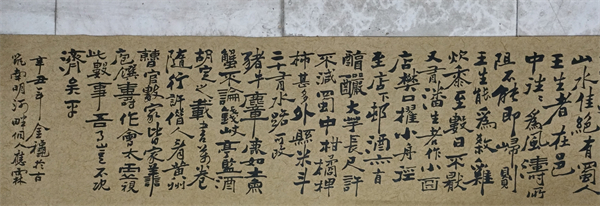 山水佳絕有蜀人
王生者在邑
中往往為風濤所
阻不能即歸則
王生能為殺雞
炊黍至數日不厭
又有潘生者作酒
店樊口櫂小舟徑
至店下邨酒亦自
醇釅大芋長尺許
不減蜀中柑橘椑
柿甚多外縣米斗
二十有水路可致
豬牛麞鹿如土魚
蟹不論錢岐亭監酒
胡定之載書萬卷
隨行許借人看黃州
曹官數家皆家善
庖饌喜作會太虛視
此數事吾事豈不既
濟矣乎
辛丑年金穐於古
筑南明河畔個人應霖